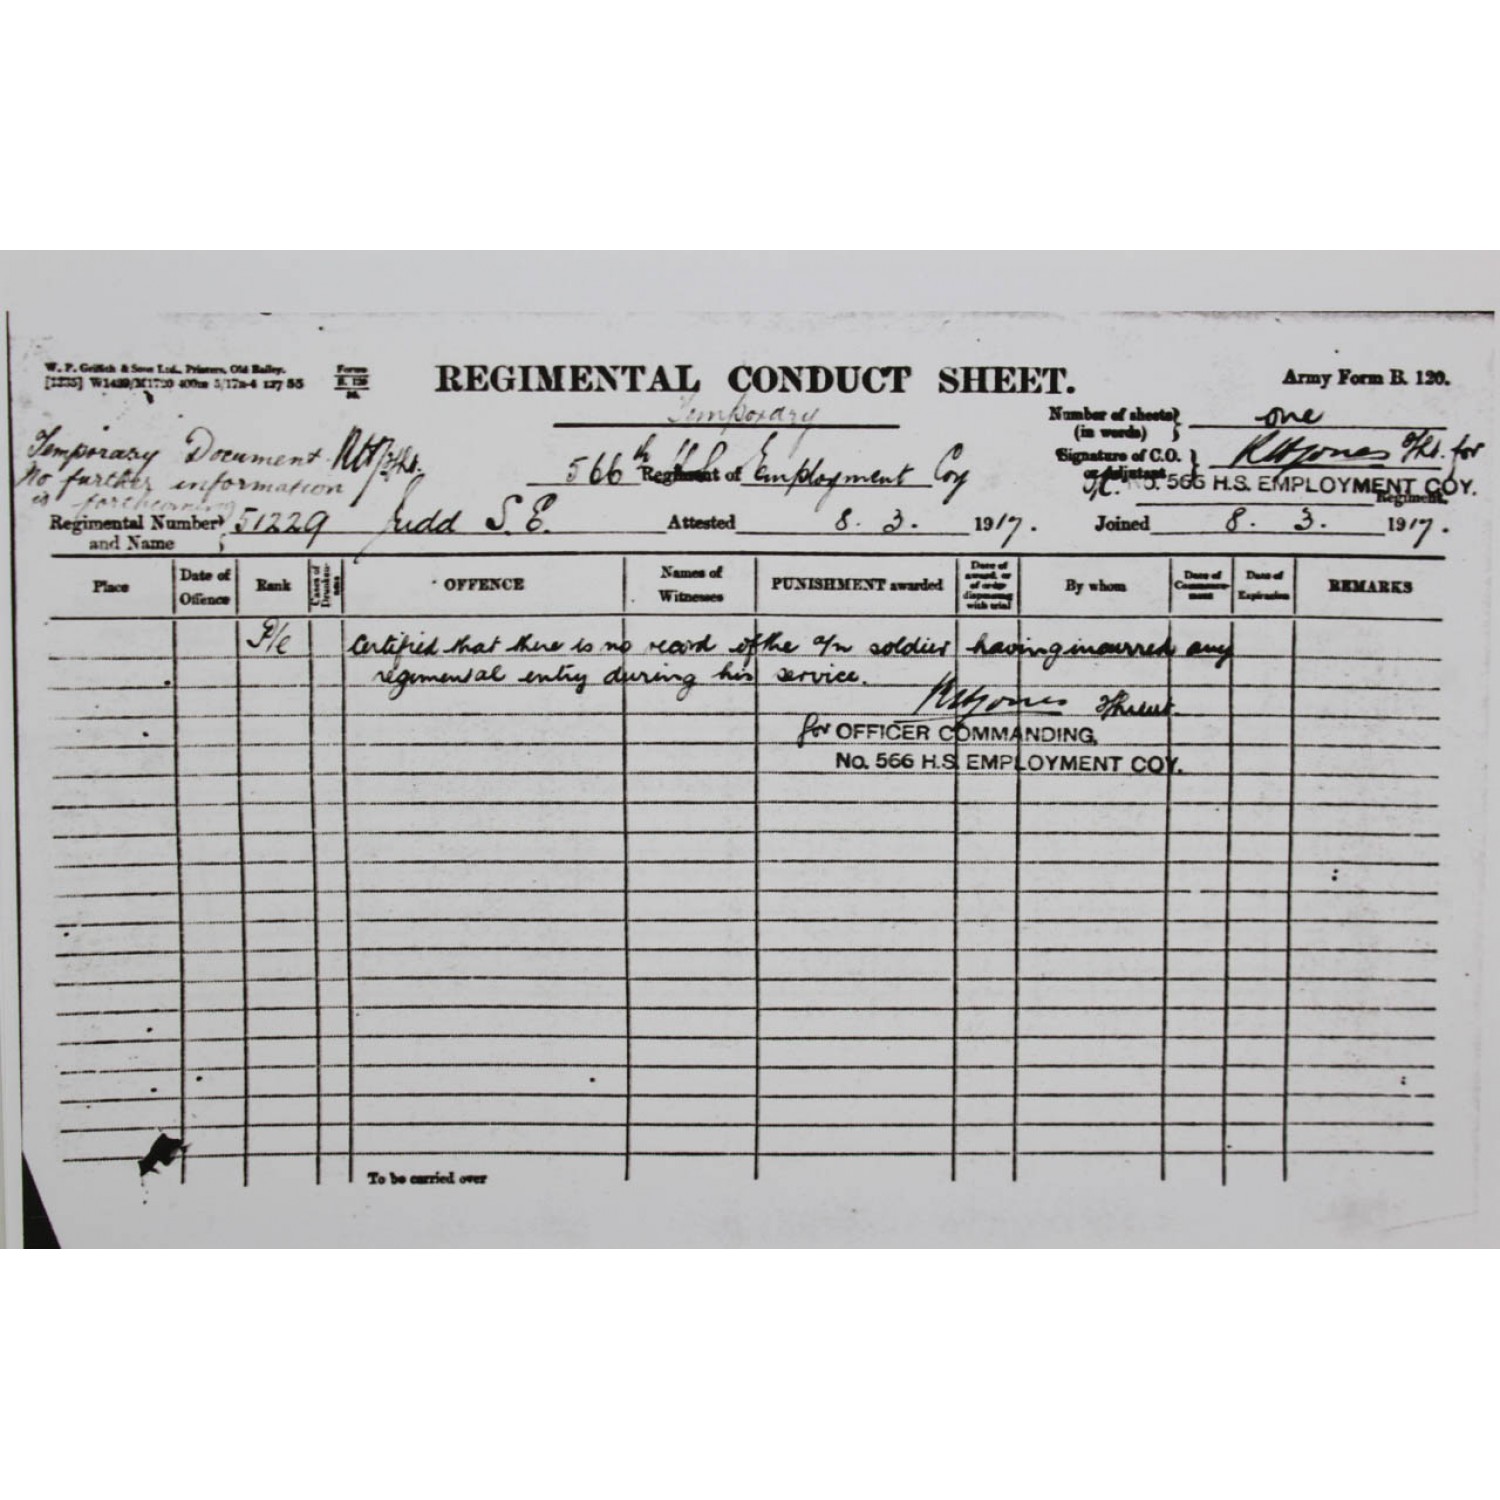 W. P. Griffith & Sons Ltd., Printers, Old Bailey.
[1235] W1429/M1720 400m 5/17 127 55
Forms
B. 120
REGIMENTAL CONDUCT SHEET.
Army Form B. 120.
Temporary
Number of sheets (in words) } one
Temporary Document
No further information
is forthcoming
566th Regiment of H.S. Employment Coy
Signature of C.O. or Adjutant } R H Jones for
O.C. NO. 566 H.S. EMPLOYMENT COY.
Regiment.
Regimental Number and Name } 51229 Judd S. E. Attested 8. 3. 1917. Joined 8. 3. 1917.
Place Date of Offence Rank Cases of Drunkenness OFFENCE Names of Witnesses PUNISHMENT awarded Date of award, or of order dispensing with trial By whom Date of Commencement Date of Expiration REMARKS
P/e Certified that there is no record of the a/n soldier having incurred any
regimental entry during his service.
R H Jones
for OFFICER COMMANDING,
No. 566 H.S. EMPLOYMENT COY.
To be carried over